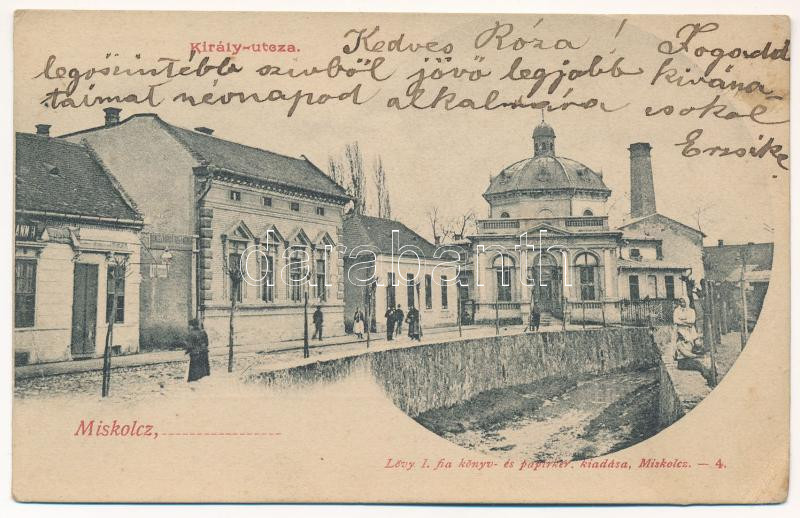 Király-utcza.
Kedves Róza! Fogadd
legőszintébb szivből jövő legjobb kivána-
taimat névnapod alkalmára csokol
Erzsike
darabanth
Miskolcz,
Lővy I. fia könyv- és papirker. kiadása, Miskolcz. — 4.